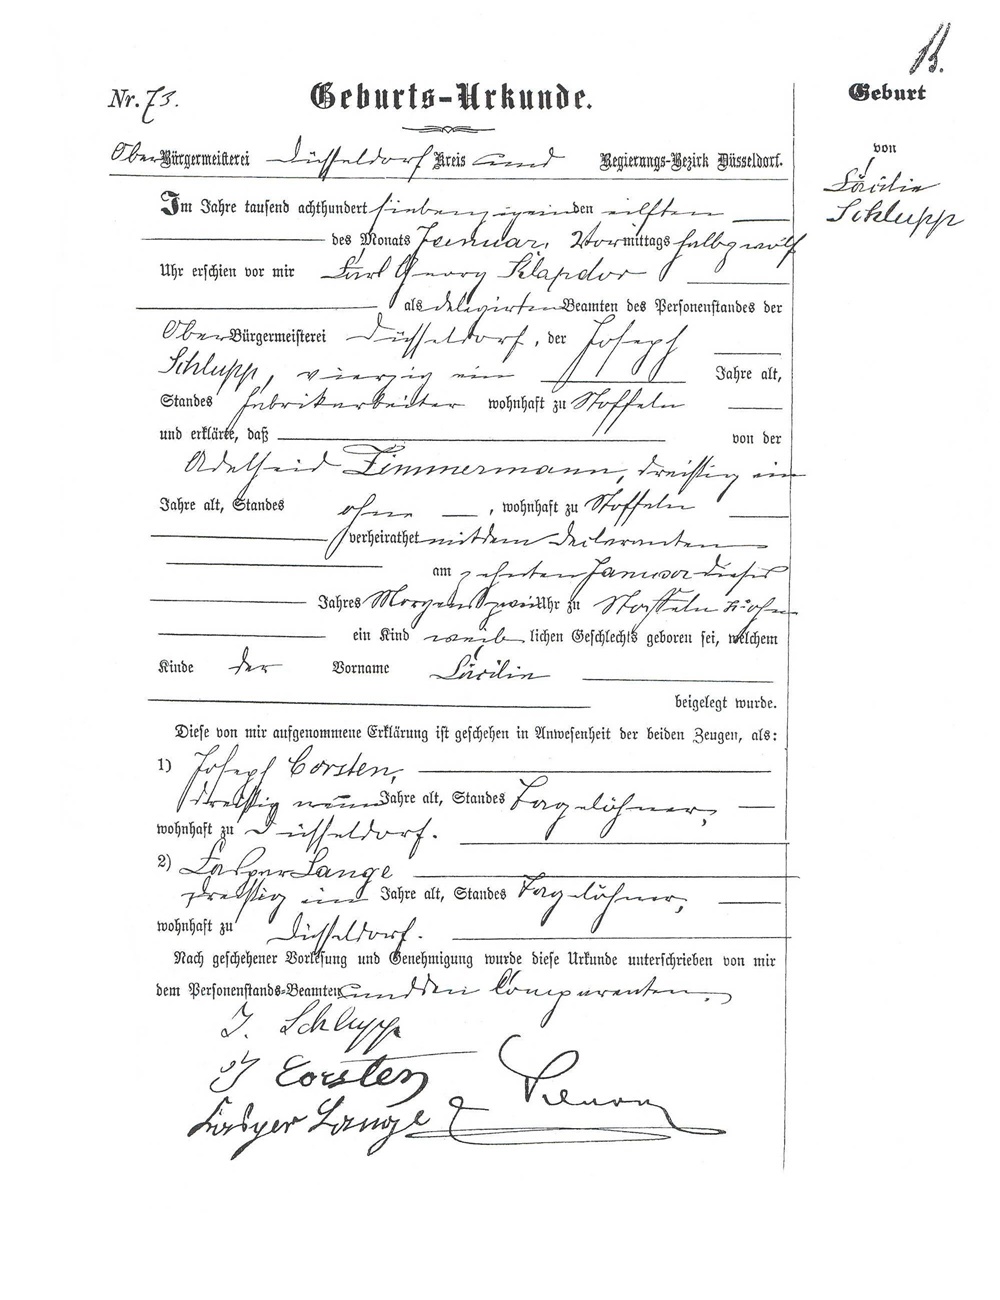 B.
Nr. 73.
Geburts-Urkunde.
Geburt
von
Cäcilie
Schlupp
Ober Bürgermeisterei Düsseldorf Kreis und Regierungs-Bezirk Düsseldorf.
Im Jahre tausend achthundert siebenzig ein den eilften
des Monats Januar, Vormittags halb zwölf
Uhr erschien vor mir Carl Georg Klapdor
als delegirten Beamten des Personenstandes der
Ober Bürgermeisterei Düsseldorf, der Joseph
Schlupp, vierzig ein Jahre alt,
Standes Fabrikarbeiter wohnhaft zu Stoffeln
und erklärte, daß von der
Adelheid Zimmermann, dreissig ein
Jahre alt, Standes ohne, wohnhaft zu Stoffeln
verheirathet mit dem Declaranten
am zehnten Januar dieses
Jahres Morgens zwei Uhr zu Stoffeln
ein Kind weiblichen Geschlechts geboren sei, welchem
Kinde der Vorname Cäcilie
beigelegt wurde.
Diese von mir aufgenommene Erklärung ist geschehen in Anwesenheit der beiden Zeugen, als:
1) Joseph Corsten,
dreissig neun Jahre alt, Standes Tagelöhner,
wohnhaft zu Düsseldorf.
2) Casper Lange
dreissig ein Jahre alt, Standes Tagelöhner,
wohnhaft zu Düsseldorf.
Nach geschehener Vorlesung und Genehmigung wurde diese Urkunde unterschrieben von mir
dem Personenstands-Beamten und den Comparenten.
J. Schlupp
J Corsten
Casper Lange